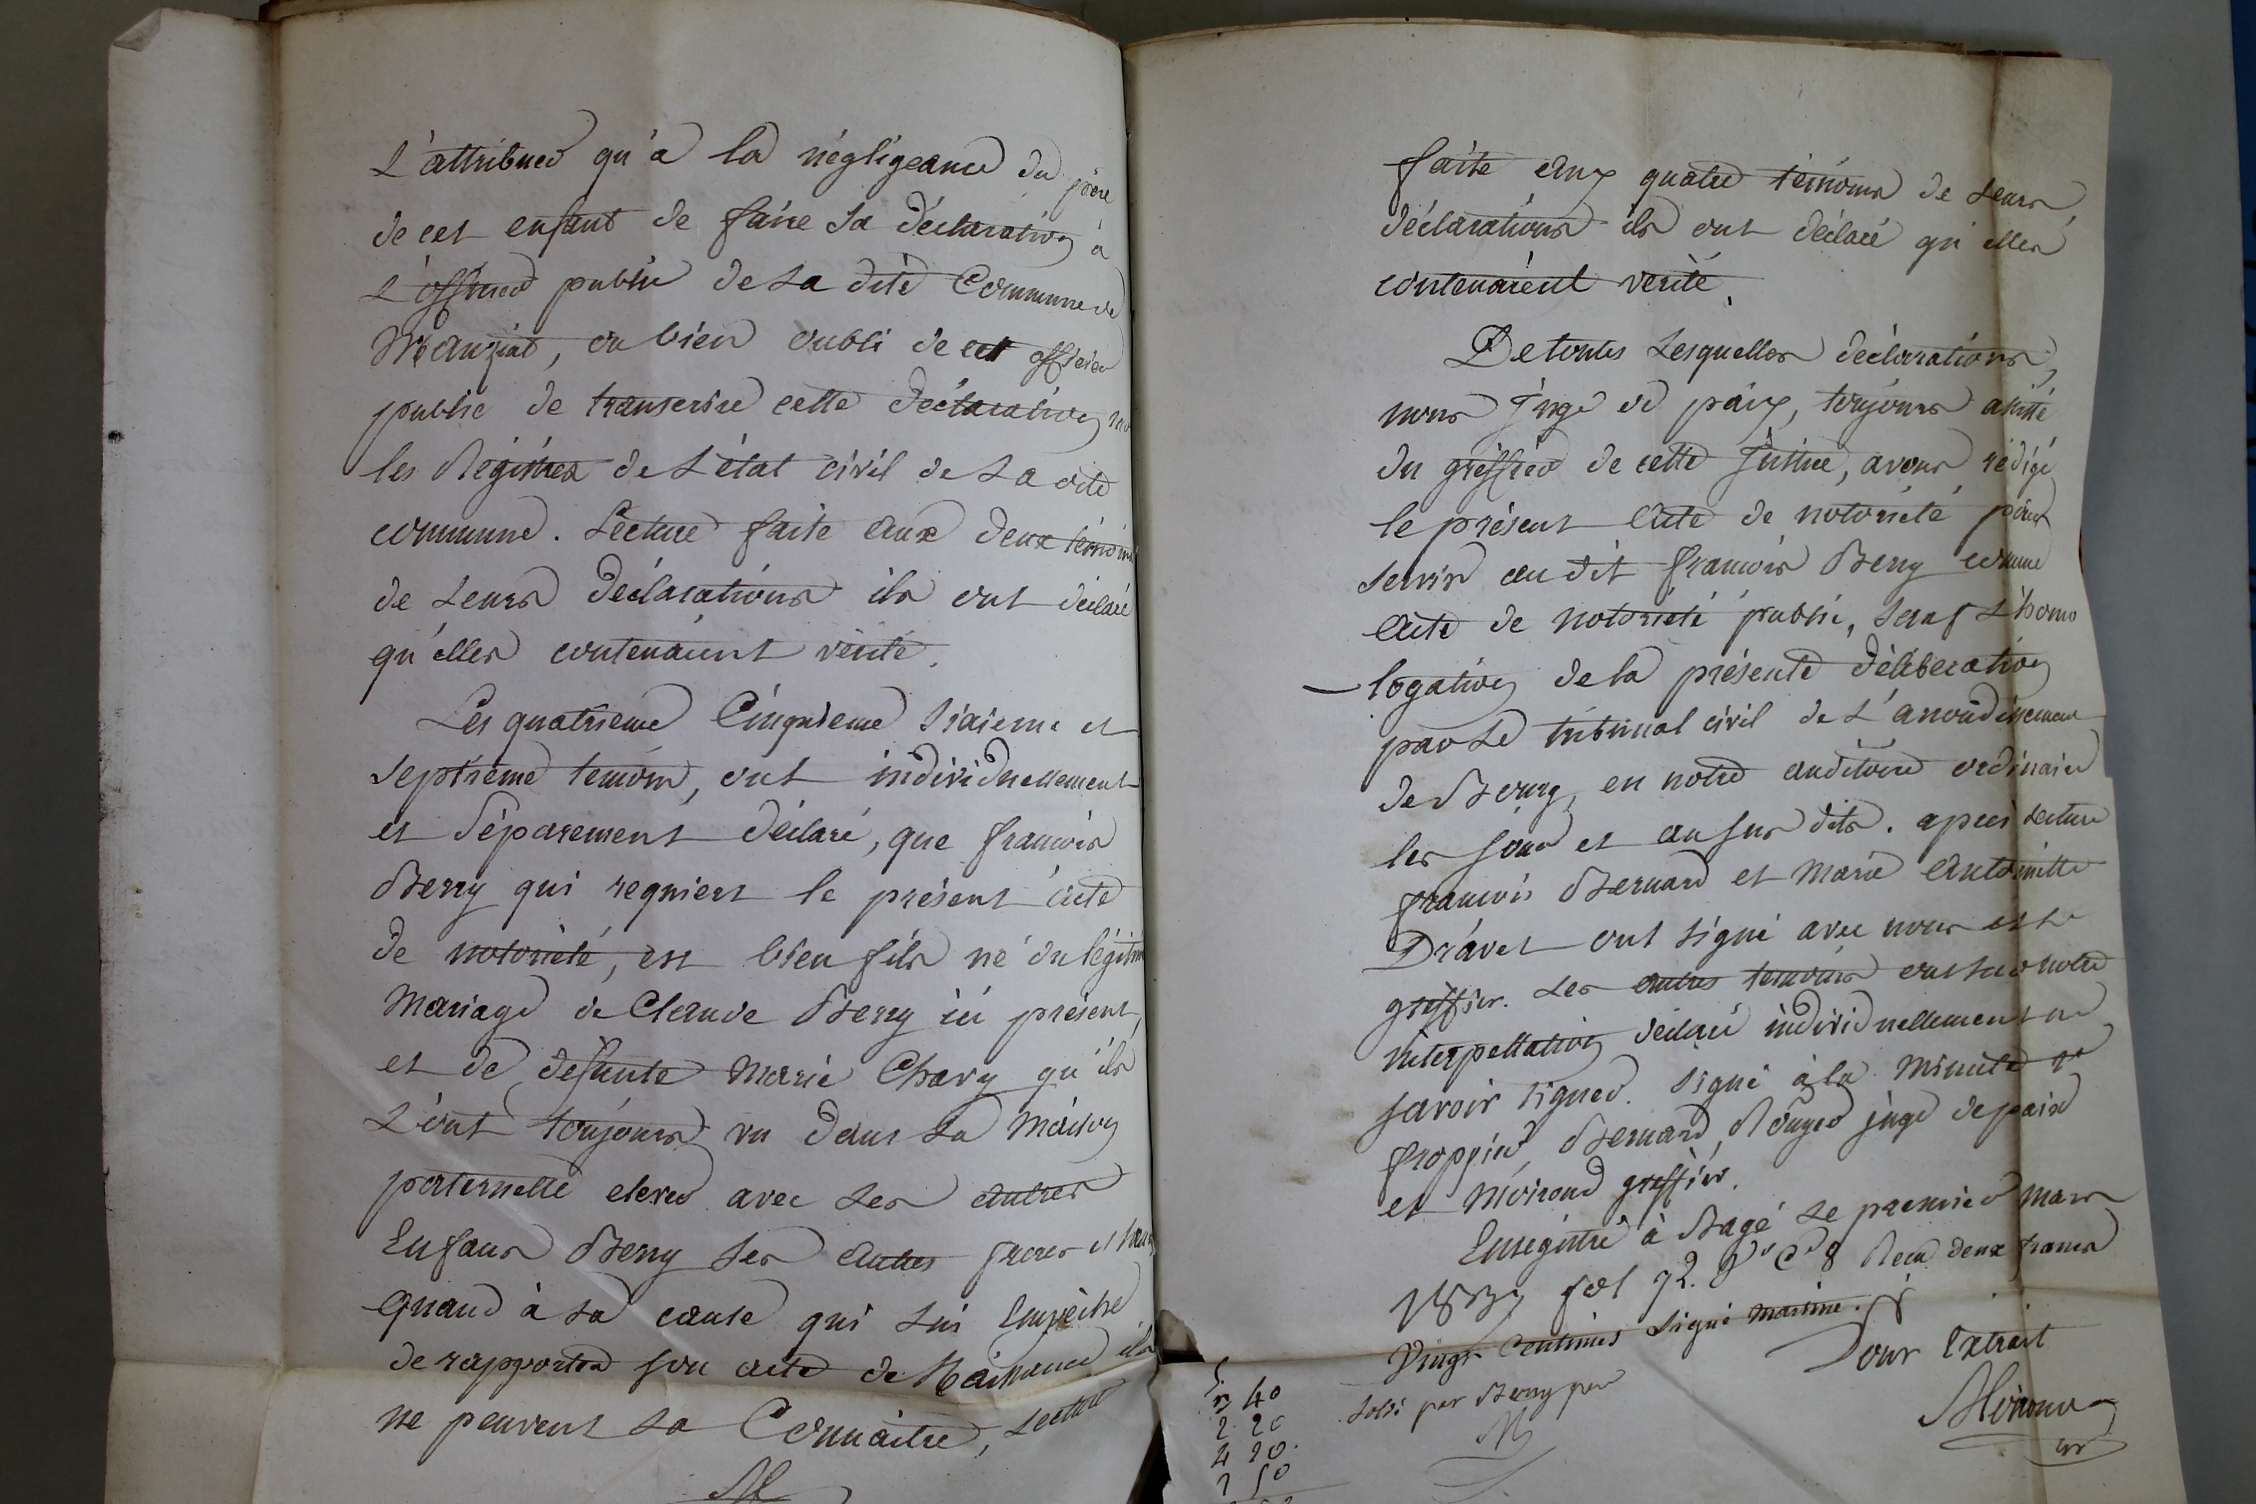 L'attribuer qu'à la négligeance du père
de cet enfant de faire sa déclaration à
L'officier public de la dite Commune de
Manziat, ou bien oubli de cet officier
public de transcrire cette déclaration sur
les Régistres de L'état civil de La dite
commune. Lecture faite aux deux témoins
de Leurs déclarations ils ont déclaré
qu'elles contenaient vérité.
Les quatrieme Cinquieme sixieme et
septieme temoin, ont individuellement
et séparement déclaré, que francois
Berry qui requiert le présent acte
de notorieté, est bien fils né du légitime
Mariage de Claude Berry ici présent,
et de défunte Marie Chavy qu'ils
L'ont toujours vu dans La Maison
paternelle elever avec Les autres
Enfans Berry Ses autres freres et sœurs
Quand à La cause qui Lui Empèche
de rapporter son acte de Naissance ils
ne peuvent La Connaitre, Lecture
faite aux quatre témoins de Leurs
déclarations ils ont déclaré qu'elles
contenaient verité.
De toutes Lesquelles déclarations,
nous Juge de paix, toujours assisté
du greffier de cette Justice, avons rédigé
le présent acte de notorieté pour
servir au dit francois Berry comme
acte de notorieté public, sauf L'homo
logation de la présente déliberation
par Le tribunal civil de L'arrondissement
de Bourg, en notre auditoire ordinaire
les jour et an sus dits. après Lecture
francois Bernard et Marie Antoinette
Dravet ont signé avec nous et Le
greffier. Les autres temoins ont sur notre
interpellation déclaré individuellement ne
savoir signer. signé à La Minute
froppier Bernard, Rouyer juge de paix
et Moirond greffier.
Enregistré à Bagé Le premier Mars
fol 72. Reçu deux francs
Vingt Centimes signé
Pour Extrait
Soldé par Berry père
40
2 20
4 20
1 50